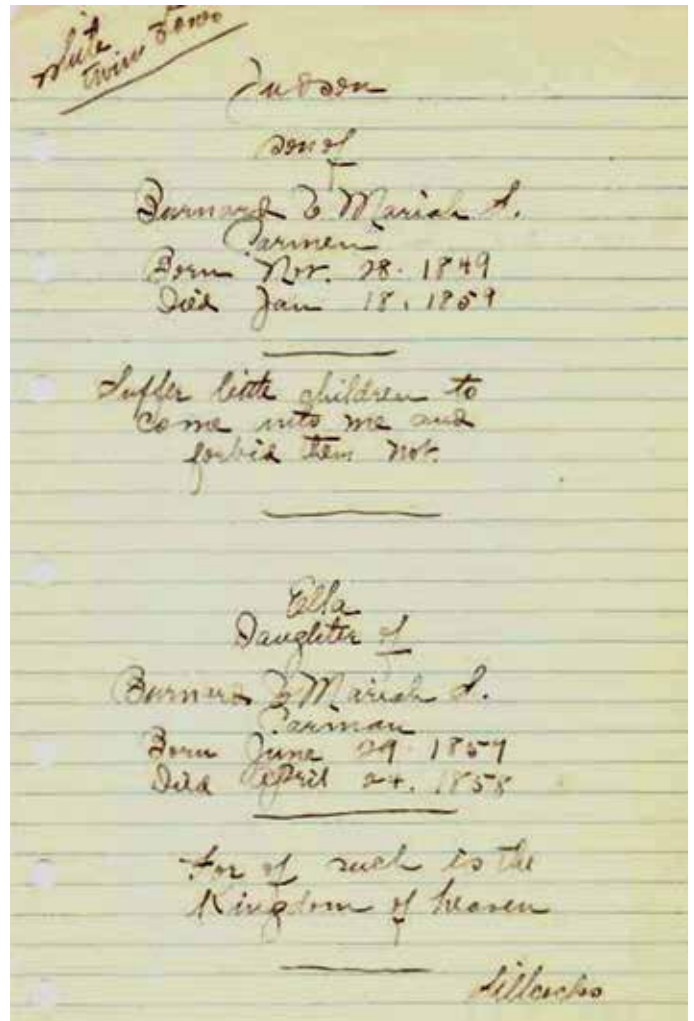 white
twin stone
Judson
son of
Burnard & Mariah S.
Carmen
Born Nov. 28. 1849
Died Jan 18, 1859
Suffer little children to
come unto me and
forbid them not.
Ella
Daughter of
Burnard & Mariah S.
Carman
Born June 29. 1857
Died April 24. 1858
For of such is the
Kingdom of heaven